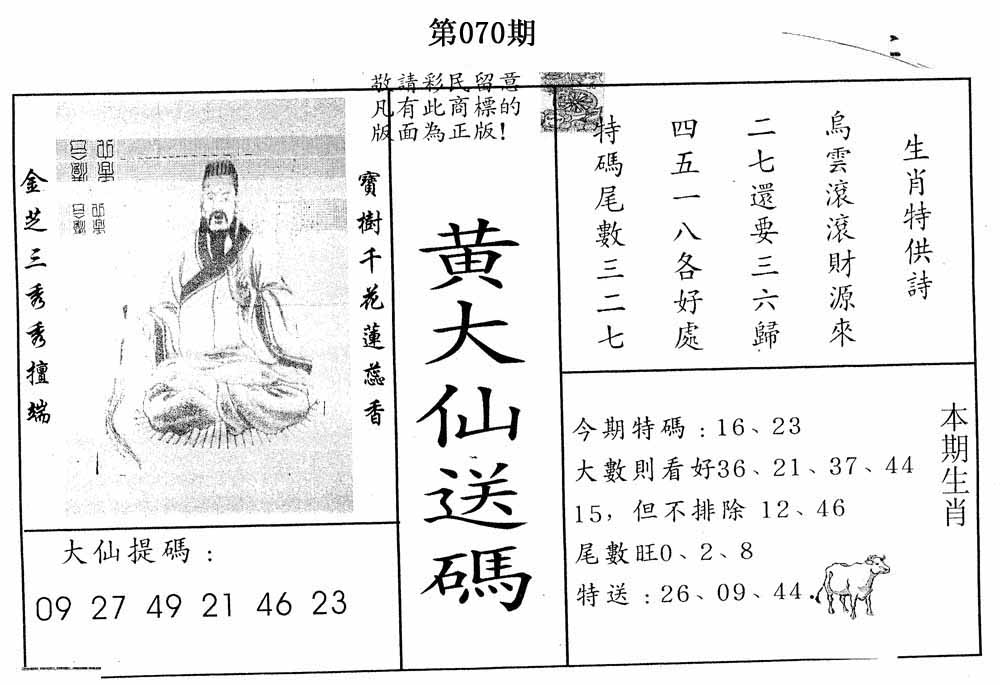 第070期
敬請彩民留意
凡有此商標的
版面為正版!
寶樹千花蓮蕊香
金芝三秀秀擅端
黃大仙送碼
生肖特供詩
烏雲滾滾財源來
二七還要三六歸
四五一八各好處
特碼尾數三二七
本期生肖
今期特碼：16、23
大數則看好36、21、37、44
15，但不排除 12、46
尾數旺0、2、8
特送：26、09、44.
大仙提碼：
09 27 49 21 46 23